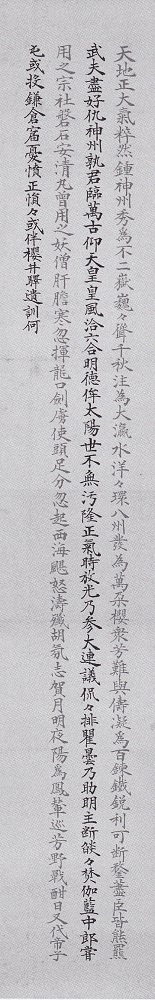 天地正大氣粹然鍾神州秀爲不二嶽巍々聳千秋注爲大瀛水洋々環八州發爲萬朶櫻衆芳難與儔凝爲百鍊鐵鋭利可断鍪藎臣皆熊羆
武夫盡好仇神州孰君臨萬古仰天皇皇風洽六合明德侔太陽世不無汚隆正氣時放光乃参大連議侃々排瞿曇乃助明主断燄々焚伽藍中郎嘗
用之宗社磐石安清丸曽用之妖僧肝膽寒忽揮龍口劍虜使頭足分忽起西海颶怒濤殲胡氛志賀月明夜陽爲鳳輦巡芳野戰酣日又代帝子
屯或投鎌倉窟憂憤正愪々或伴櫻井驛遺訓何